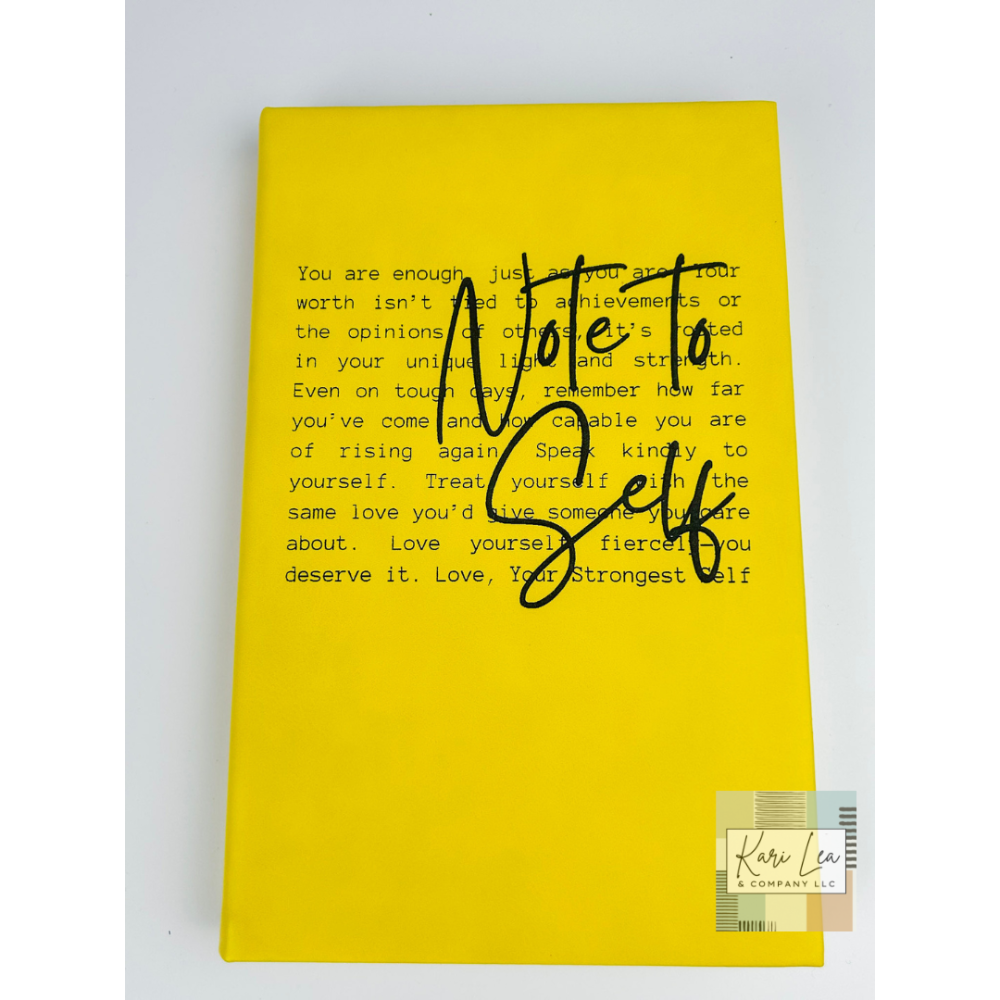 You are enough, just as you are. Your
worth isn't tied to achievements or
the opinions of others, it's rooted
in your unique light and strength.
Even on tough days, remember how far
you've come and how capable you are
of rising again. Speak kindly to
yourself. Treat yourself with the
same love you'd give someone you care
about. Love yourself fiercely—you
deserve it. Love, Your Strongest Self
Note to
Self
Kari Lea
& COMPANY LLC